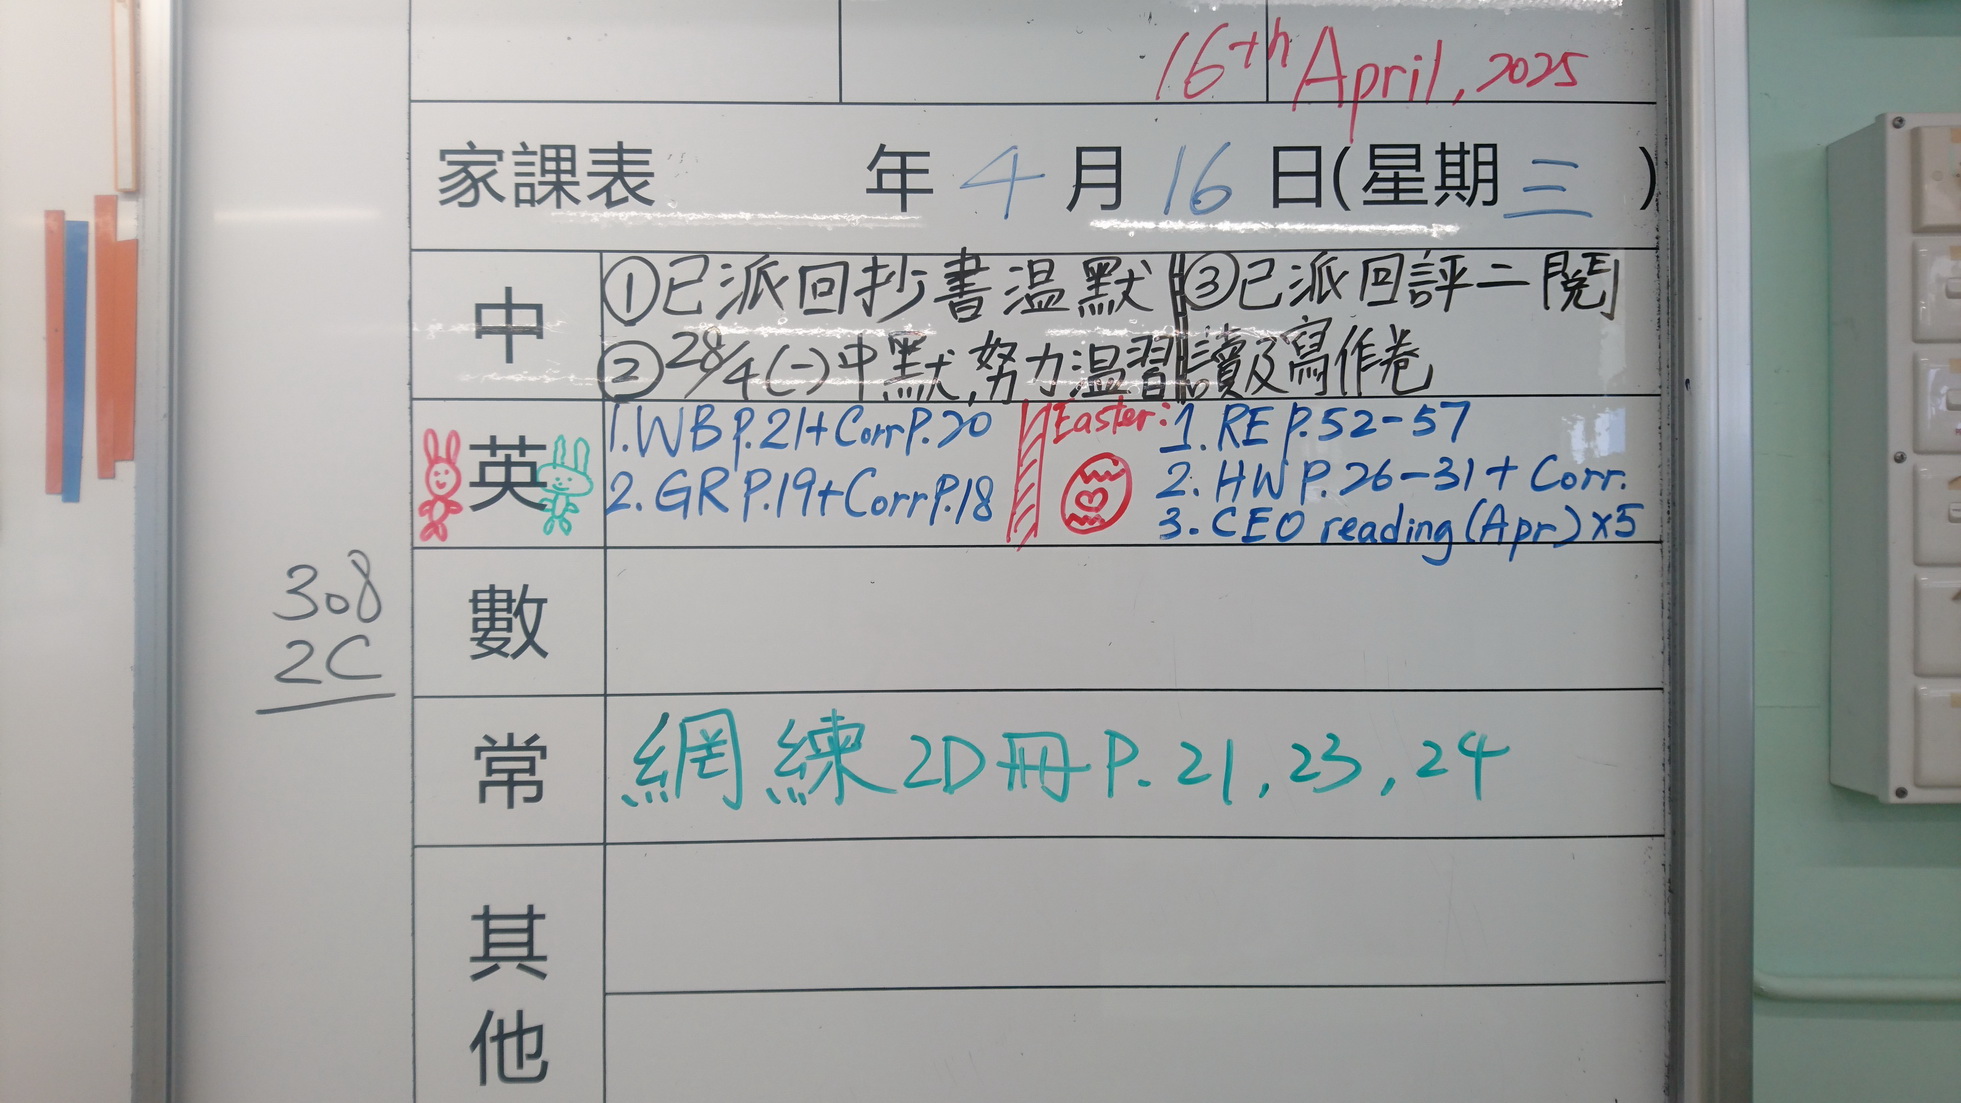 16th April, 2025
家課表 年 4 月 16 日(星期三 )
中
①已派回抄書温默
②28/4(一)中默,努力温習
③已派回評二閱
讀及寫作卷
英
1. WB P.21+Corr P.20
2. GR P.19+Corr P.18
Easter: 1. RE P.52-57
2. HW P.26-31 + Corr.
3. CEO reading (Apr) x5
數
308
2C
常
網練 2D冊 P. 21, 23, 24
其
他